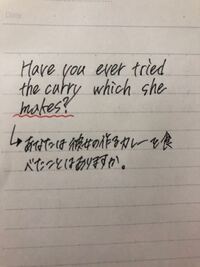 Have you ever tried
the curry which she
makes?
↳あなたは彼女の作るカレーを食
べたことはありますか。